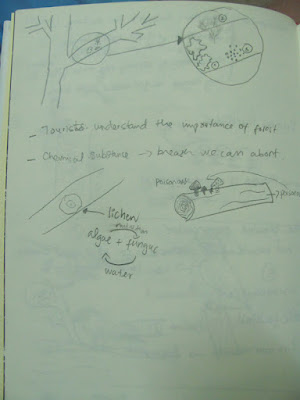 - Tourists understand the importance of forest
- Chemical substance → breath we can
poison
lichen
algae + fungus
water